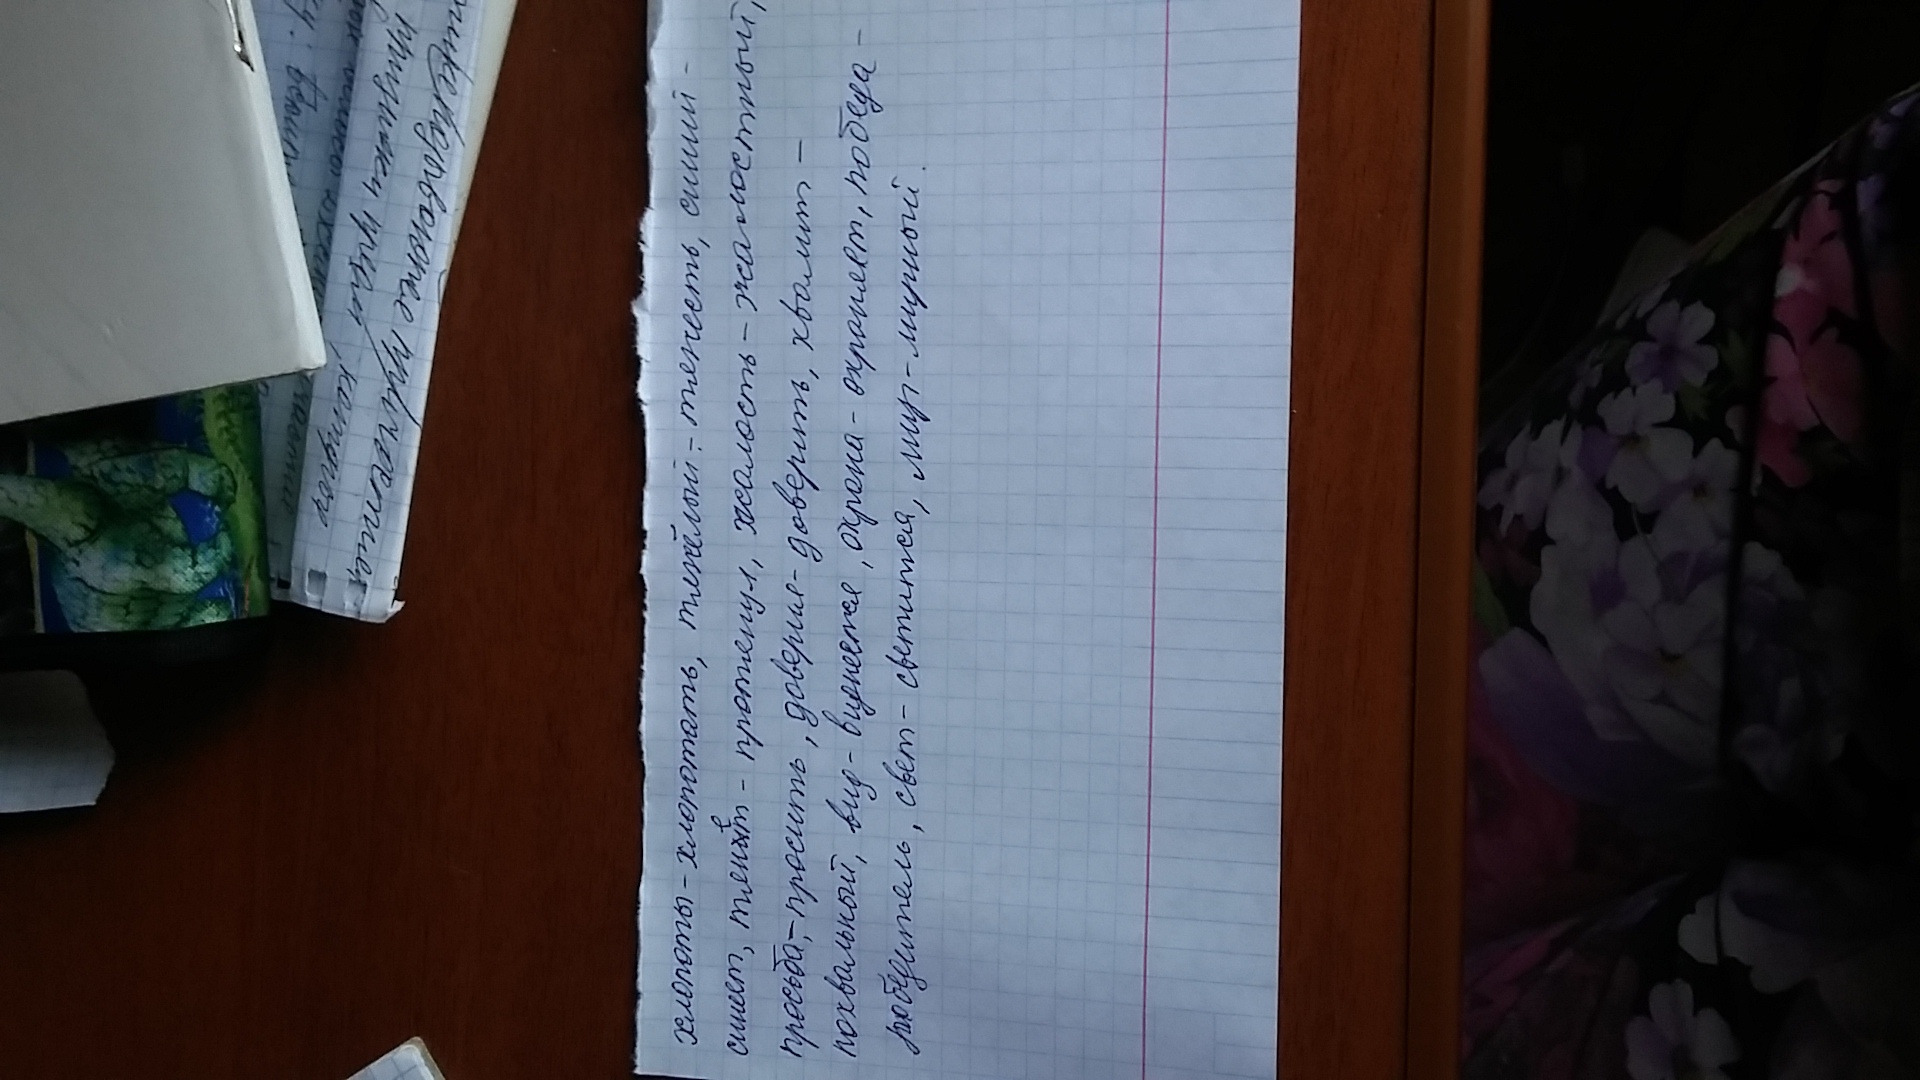 хлопоты - хлопотать, тяжёлый - тяжесть, синий -
синеет, тянет - протянул, жалость - жалостный,
просьба, - просить, доверия - доверить, хвалит -
похвальный, вид - виднеется, охрана - охраняет, победа -
победитель, свет - светится, мир - мирный.